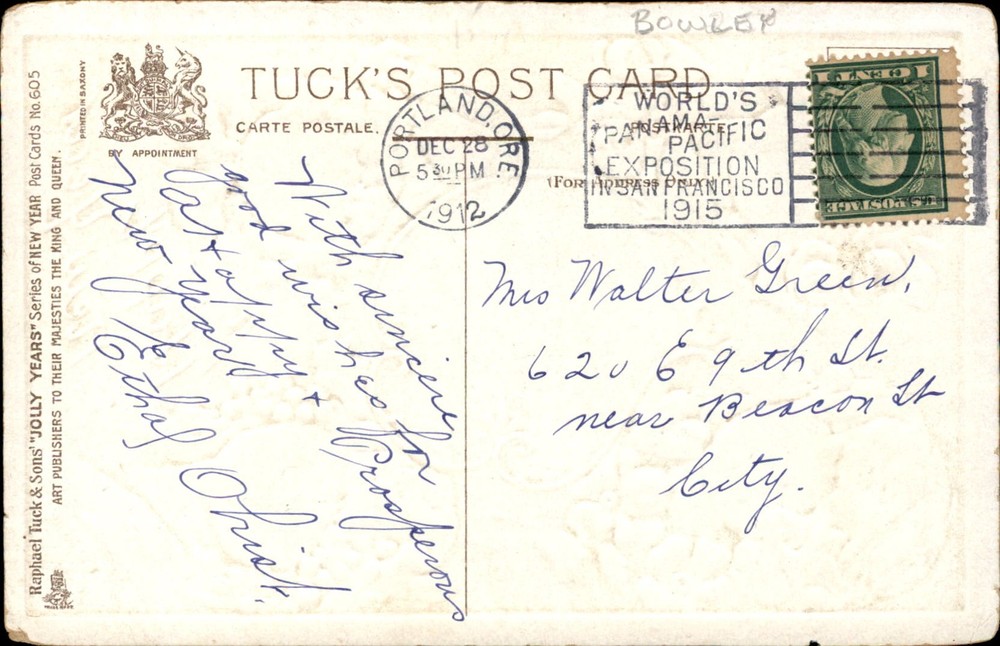 BOWLEY
TUCK'S POST CARD
CARTE POSTALE.
POSTKARTE
(FOR ADDRESS ONLY)
BY APPOINTMENT
PRINTED IN SAXONY
Raphael Tuck & Sons' "JOLLY YEARS" Series of NEW YEAR Post Cards No. 605
ART PUBLISHERS TO THEIR MAJESTIES THE KING AND QUEEN.
PORTLAND, ORE.
DEC 28
5 30 PM
1912
WORLD'S
PANAMA-
PACIFIC
EXPOSITION
IN SAN FRANCISCO
1915
1 CENT 1
U.S. POSTAGE
With sincere
good wishes for
a &
Prosperous
New year
Ethal
Mrs Walter Green,
620 E 9th St.
near Beacon St
City.